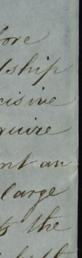 fore
dship
cisive
quire
ent an
large
ts the